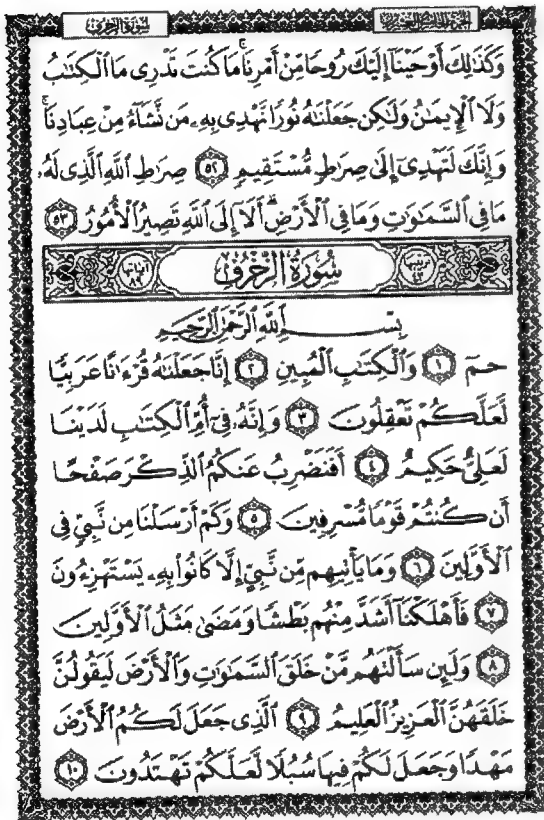 سُورَةُ الزُّخْرُفِ الجُزْءُ الخَامِسُ وَالعِشْرُونَ
وَكَذَٰلِكَ أَوْحَيْنَآ إِلَيْكَ رُوحًا مِّنْ أَمْرِنَا ۚ مَا كُنتَ تَدْرِى مَا ٱلْكِتَٰبُ
وَلَا ٱلْإِيمَٰنُ وَلَٰكِن جَعَلْنَٰهُ نُورًا نَّهْدِى بِهِۦ مَن نَّشَآءُ مِنْ عِبَادِنَا ۚ
وَإِنَّكَ لَتَهْدِىٓ إِلَىٰ صِرَٰطٍ مُّسْتَقِيمٍ ٥٢ صِرَٰطِ ٱللَّهِ ٱلَّذِى لَهُۥ
مَا فِى ٱلسَّمَٰوَٰتِ وَمَا فِى ٱلْأَرْضِ ۗ أَلَآ إِلَى ٱللَّهِ تَصِيرُ ٱلْأُمُورُ ٥٣
ترتيبها ٤٣ سُورَةُ الزُّخْرُفِ آياتها ٨٩
بِسْمِ ٱللَّهِ ٱلرَّحْمَٰنِ ٱلرَّحِيمِ
حمٓ ١ وَٱلْكِتَٰبِ ٱلْمُبِينِ ٢ إِنَّا جَعَلْنَٰهُ قُرْءَٰنًا عَرَبِيًّا
لَّعَلَّكُمْ تَعْقِلُونَ ٣ وَإِنَّهُۥ فِىٓ أُمِّ ٱلْكِتَٰبِ لَدَيْنَا
لَعَلِىٌّ حَكِيمٌ ٤ أَفَنَضْرِبُ عَنكُمُ ٱلذِّكْرَ صَفْحًا
أَن كُنتُمْ قَوْمًا مُّسْرِفِينَ ٥ وَكَمْ أَرْسَلْنَا مِن نَّبِىٍّ فِى
ٱلْأَوَّلِينَ ٦ وَمَا يَأْتِيهِم مِّن نَّبِىٍّ إِلَّا كَانُوا۟ بِهِۦ يَسْتَهْزِءُونَ
٧ فَأَهْلَكْنَآ أَشَدَّ مِنْهُم بَطْشًا وَمَضَىٰ مَثَلُ ٱلْأَوَّلِينَ
٨ وَلَئِن سَأَلْتَهُم مَّنْ خَلَقَ ٱلسَّمَٰوَٰتِ وَٱلْأَرْضَ لَيَقُولُنَّ
خَلَقَهُنَّ ٱلْعَزِيزُ ٱلْعَلِيمُ ٩ ٱلَّذِى جَعَلَ لَكُمُ ٱلْأَرْضَ
مَهْدًا وَجَعَلَ لَكُمْ فِيهَا سُبُلًا لَّعَلَّكُمْ تَهْتَدُونَ ١٠